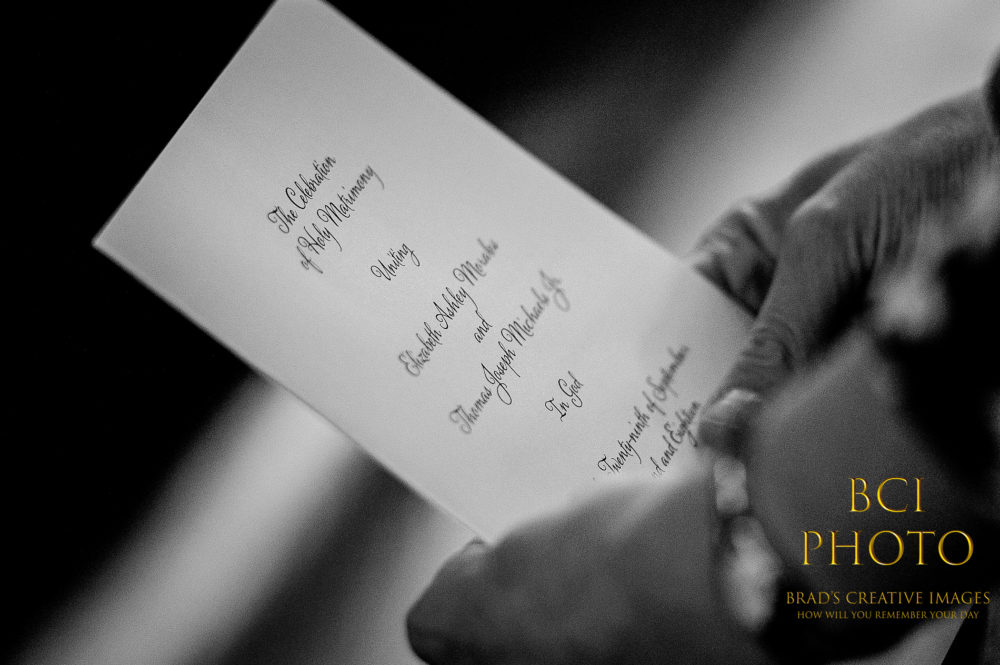 The Celebration
of Holy Matrimony
Uniting
Elizabeth Ashley
and
Thomas Joseph Michaels Jr.
In God
Twenty-ninth of September
and Eighteen
BCI
PHOTO
BRAD'S CREATIVE IMAGES
HOW WILL YOU REMEMBER YOUR DAY